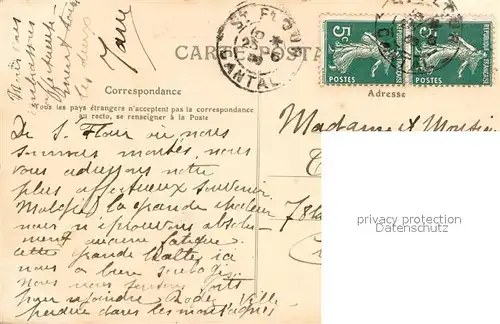 Mais vous
embrassons
affectueuse
ment tous
les deux
Jane
CARTE POSTALE
ST FLOUR
CANTAL
5c
POSTES
RÉPUBLIQUE FRANÇAISE
5c
POSTES
Correspondance
Tous les pays étrangers n'acceptent pas la correspondance
au recto, se renseigner à la Poste
Adresse
De S. Flour où nous
sommes montés, nous
vous adressons notre
plus affectueux souvenir.
Malgré la grande chaleur
nous n'éprouvons absolu-
ment aucune fatigue
cette grande halte ici
nous a bien soulagés
Nous nous forts
pour rejoindre Rodez, ville
perdue dans les montagnes
Madame et Monsieur
78
privacy protection
Datenschutz